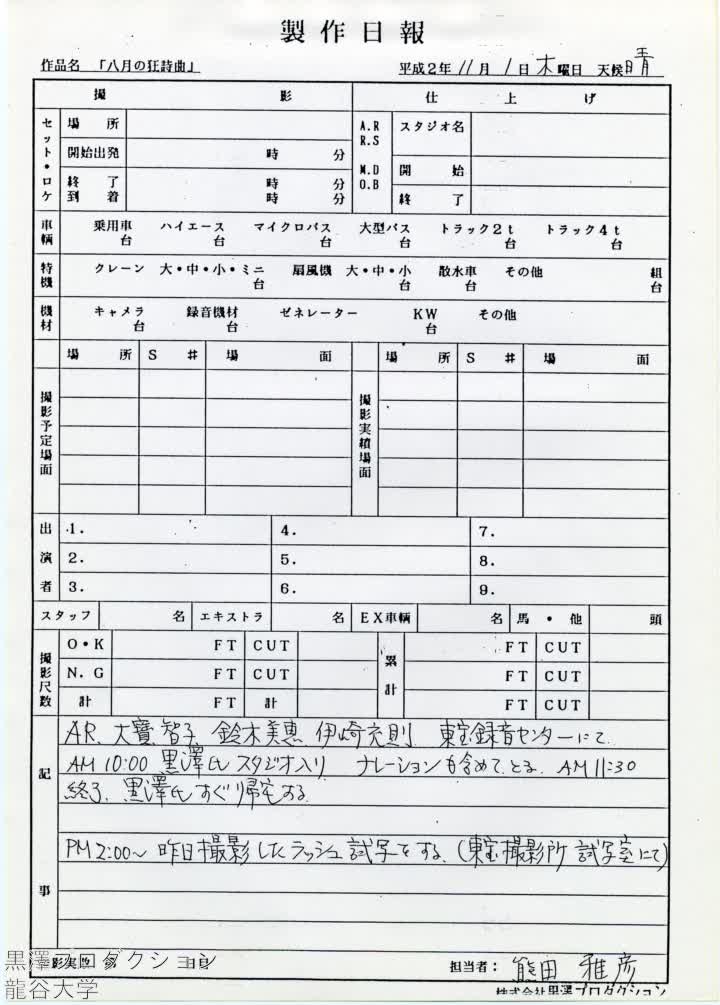 製作日報
作品名 「八月の狂詩曲」 平成2年 11月 1日 木曜日 天候 晴
撮影 仕上げ
セット・ロケ 場所 A.R R.S スタジオ名
開始出発 時 分 M.D O.B 開始
終了 時 分 終了
到着 時 分
車輌 乗用車 台 ハイエース 台 マイクロバス 台 大型バス 台 トラック2t 台 トラック4t 台
特機 クレーン 大・中・小・ミニ 台 扇風機 大・中・小 台 散水車 台 その他 組 台
機材 キャメラ 台 録音機材 台 ゼネレーター KW 台 その他
場所 S # 場面 場所 S # 場面
撮影予定場面 撮影実績場面
出演者 1. 4. 7.
2. 5. 8.
3. 6. 9.
スタッフ 名 エキストラ 名 EX車輌 名 馬・他 頭
撮影尺数 O・K FT CUT 累計 FT CUT
N.G FT CUT FT CUT
計 FT 計 FT CUT
記事
AR、大寶智子 鈴木美恵 伊崎充則 東宝録音センターにて
AM 10:00 黒澤氏スタジオ入り ナレーションも含めてとる。AM 11:30
終了、黒澤氏すぐり帰宅する。
PM 2:00~ 昨日撮影したラッシュ試写をする。(東宝撮影所 試写室にて)
担当者: 熊田 雅彦
株式会社黒澤プロダクション
黒澤プロダクション
龍谷大学